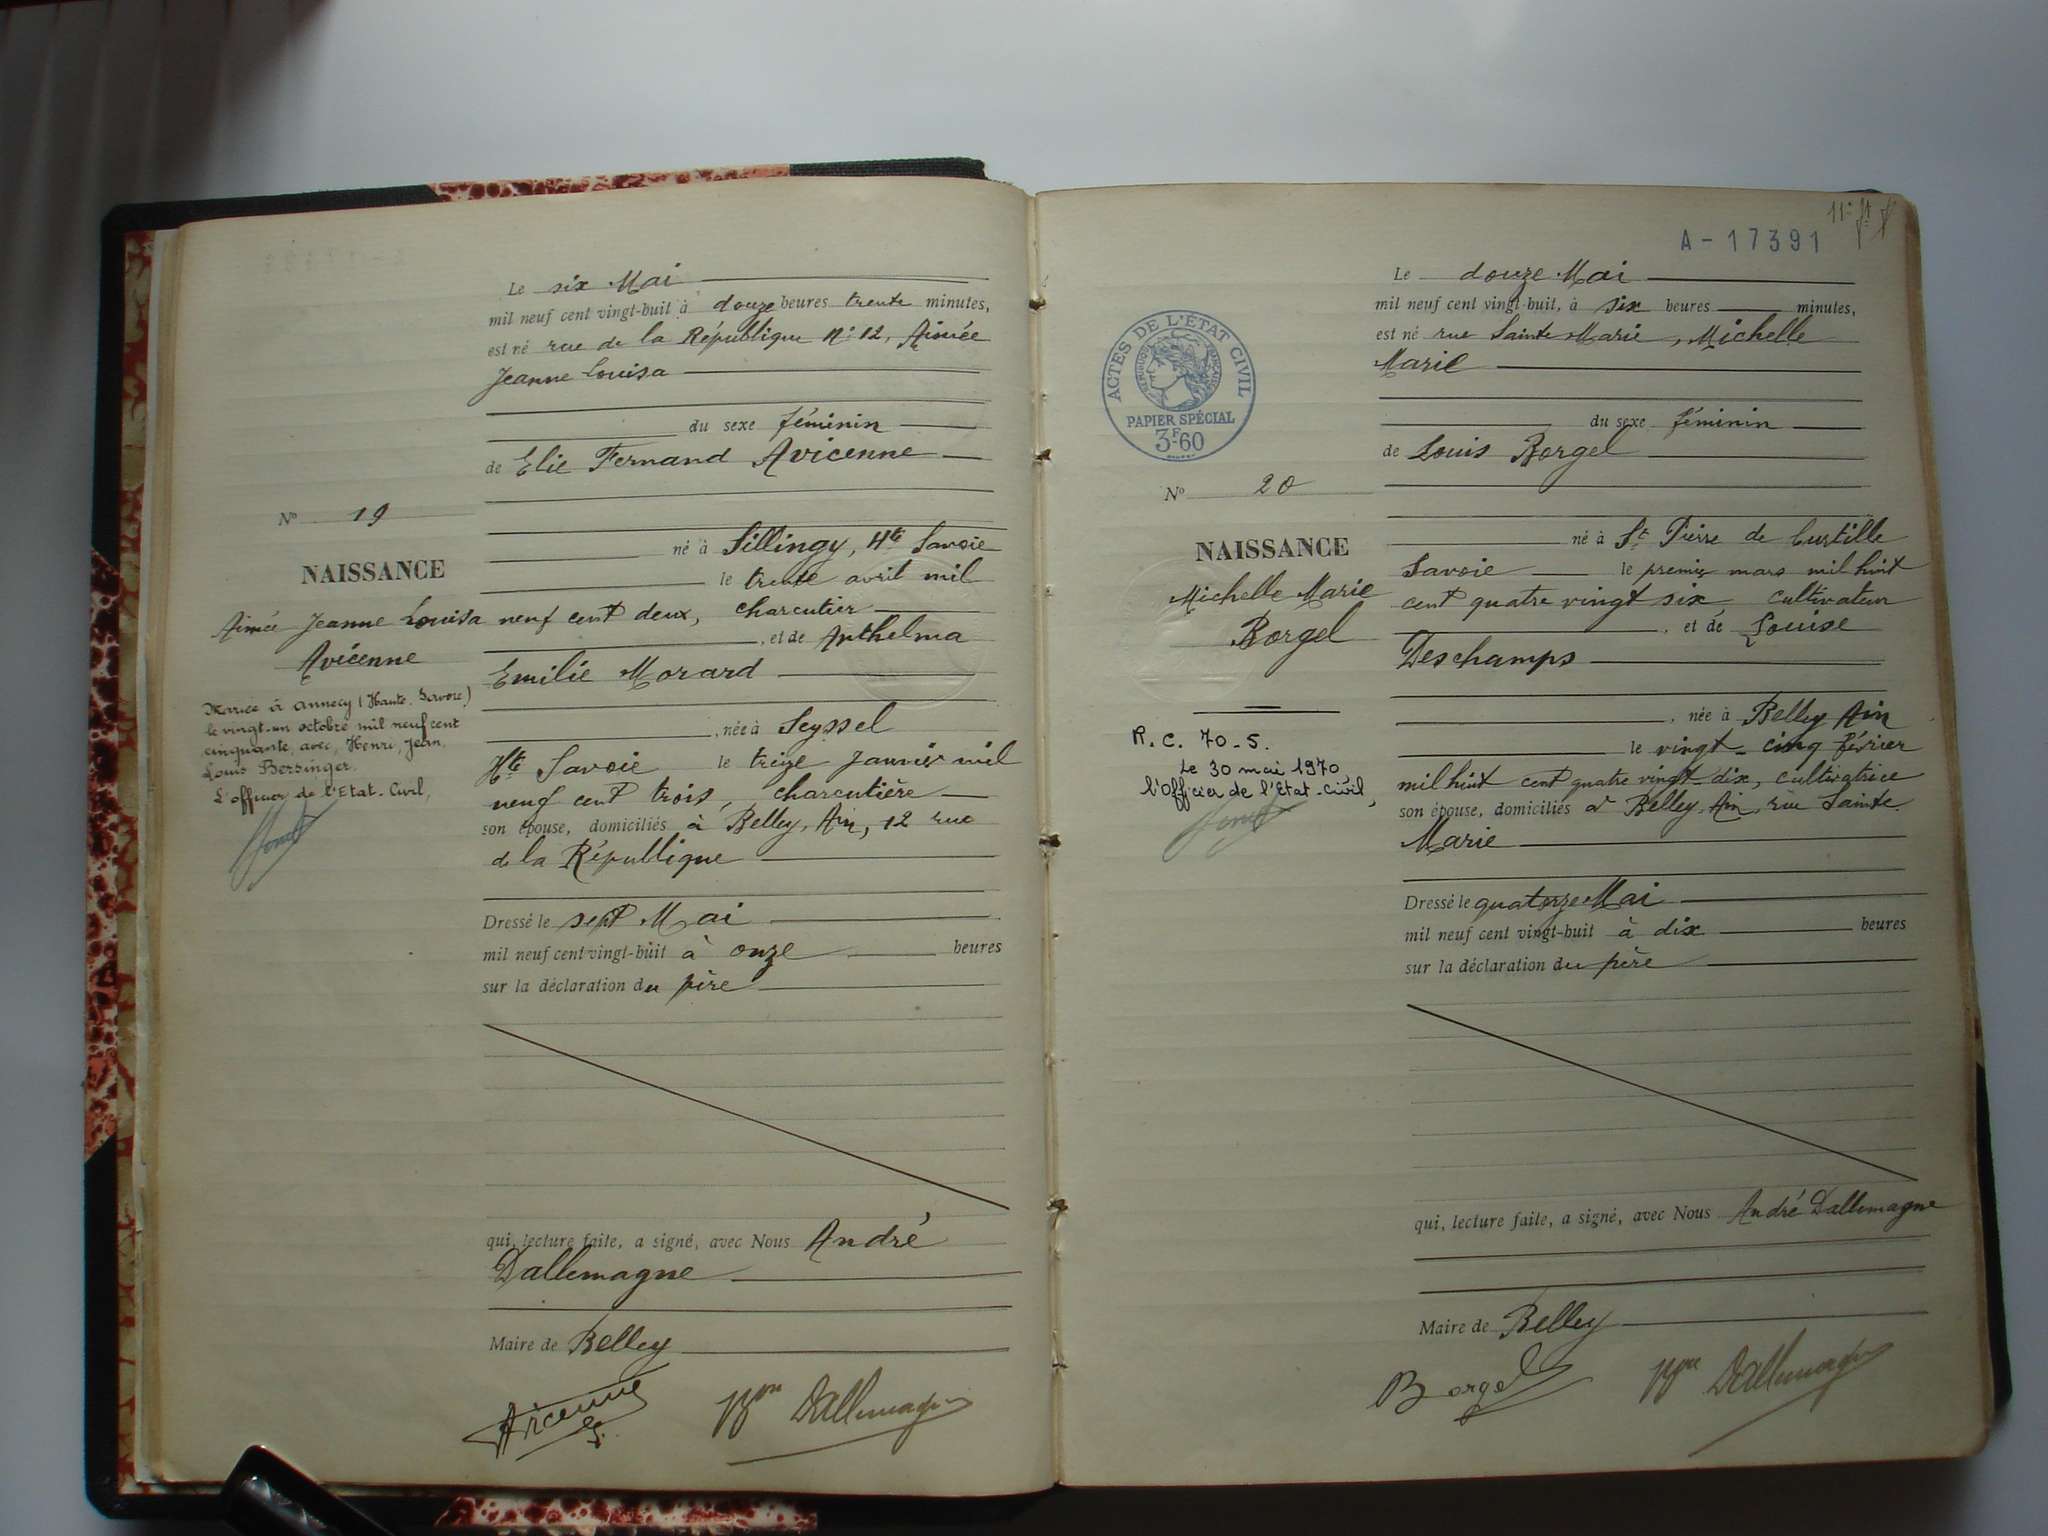 Le six Mai
mil neuf cent vingt-huit à douze heures trente minutes,
est né rue de la République N° 12, Aimée
Jeanne Louisa
du sexe féminin
de Elie Fernand Avicenne
N° 19
né à Sillingy, Hte Savoie
NAISSANCE
le trente avril mil
Aimée Jeanne Louisa
neuf cent deux, charcutier
Avicenne
, et de Anthelma
Emilie Morard
Mariée à Annecy (Haute-Savoie)
le vingt-un octobre mil neuf cent
cinquante, avec, Henri, Jean,
Louis Bersinger.
L'officier de l'Etat-Civil,
, née à Seyssel
Hte Savoie le treize Janvier mil
neuf cent trois, charcutière
son épouse, domiciliés à Belley, Ain, 12 rue
de la République
Dressé le sept Mai
mil neuf cent vingt-huit à onze heures
sur la déclaration du père
qui, lecture faite, a signé, avec Nous André
Dallemagne
Maire de Belley
Avicenne
Bon Dallemagne
11e
A-17391
Le douze Mai
mil neuf cent vingt-huit, à six heures minutes,
est né rue Sainte Marie, Michelle
Marie
ACTES DE L'ÉTAT CIVIL
RÉPUBLIQUE FRANÇAISE
PAPIER SPÉCIAL
3F60
du sexe féminin
de Louis Borgel
N° 20
né à St Pierre de Curtille
NAISSANCE
Savoie le premier mars mil huit
Michelle Marie
cent quatre vingt six, cultivateur
Borgel
, et de Louise
Deschamps
R.C. 70-5.
Le 30 mai 1970
l'Officier de l'Etat-civil,
, née à Belley Ain
le vingt-cinq février
mil huit cent quatre vingt-dix, cultivatrice
son épouse, domiciliés à Belley, Ain, rue Sainte
Marie
Dressé le quatorze Mai
mil neuf cent vingt-huit à dix heures
sur la déclaration du père
qui, lecture faite, a signé, avec Nous André Dallemagne
Maire de Belley
Borgel
Bon Dallemagne